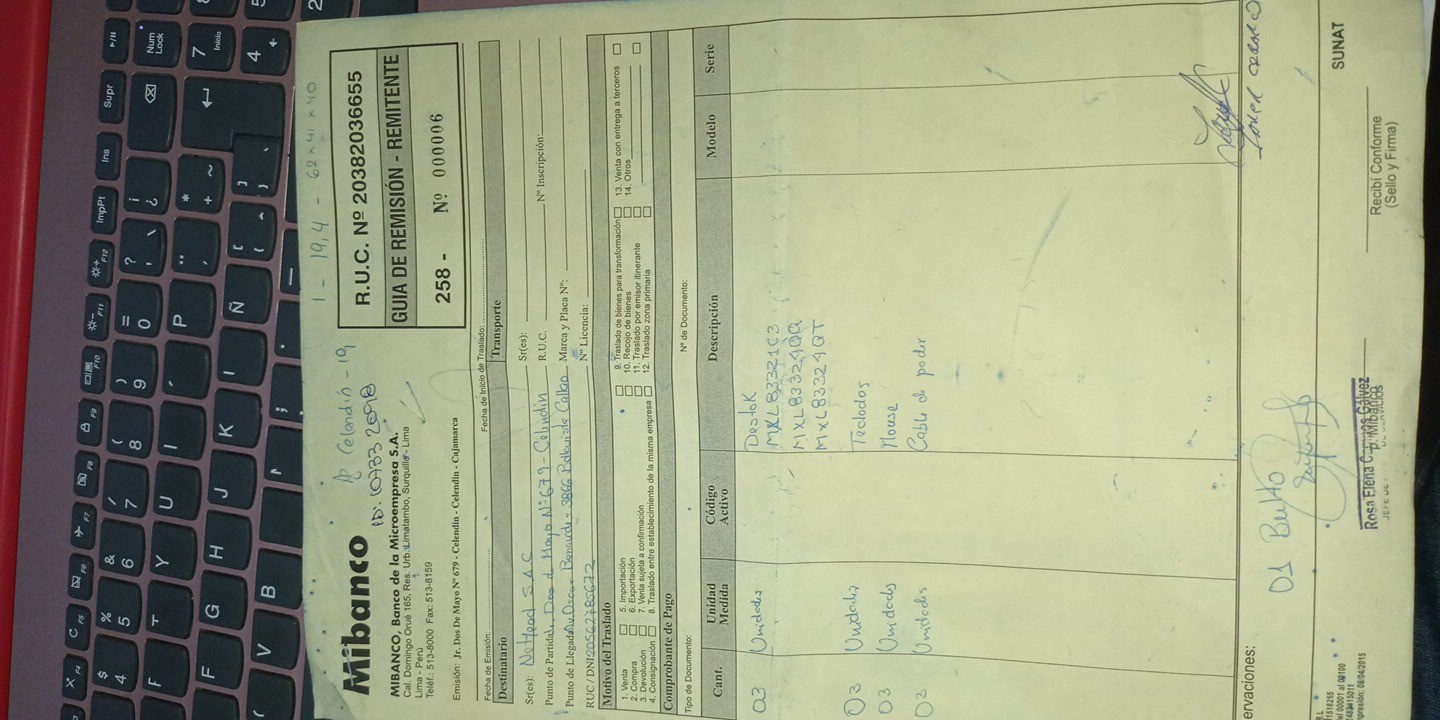 1 - 19,4 - 62 x 41 x 40
Ap Celendin - 19
ID: 10733 2098
Mibanco
MIBANCO, Banco de la Microempresa S.A.
Cal. Domingo Orué 165, Res. Urb. Limatambo, Surquillo - Lima
Lima - Perú
Teléf.: 513-8000 Fax: 513-8159
Emisión: Jr. Dos De Mayo Nº 679 - Celendin - Celendin - Cajamarca
R.U.C. Nº 20382036655
GUIA DE REMISIÓN - REMITENTE
258 - Nº 000006
Fecha de Emisión: Fecha de Inicio de Traslado:
Destinatario Transporte
Sr(es): NetHead S.A.C Sr(es):
Punto de Partida: Jr. Dos d Mayo Nº 679 - Celendin R.U.C. Nº Inscripción:
Punto de Llegada: Av. Oscar Benavides 3866 Bellavista Callao Marca y Placa Nº:
RUC / DNI 20562785672 Nº Licencia:
Motivo del Traslado
1. Venta 5. Importación 9. Traslado de bienes para transformación 13. Venta con entrega a terceros
2. Compra 6. Exportación 10. Recojo de bienes 14. Otros
3. Devolución 7. Venta sujeta a confirmación 11. Traslado por emisor itinerante
4. Consignación 8. Traslado entre establecimiento de la misma empresa 12. Traslado zona primaria
Comprobante de Pago
Tipo de Documento: Nº de Documento:
Cant. Unidad Medida Código Activo Descripción Modelo Serie
03 Unidades Destok
MXL83321C3
MXL83324QQ
MXL83324QT
03 Unidades Teclados
03 Unidads Mouse
02 Unidades Cable de poder
ervaciones:
01 Bulto
Rosa Elena Campos Gálvez
p. Mibanco
Recibí Conforme
(Sello y Firma)
SUNAT
del 00001 al 00100
mpresión: 08/04/2015
Supr
Ins
ImpPt
Num Lock
7 Inicio